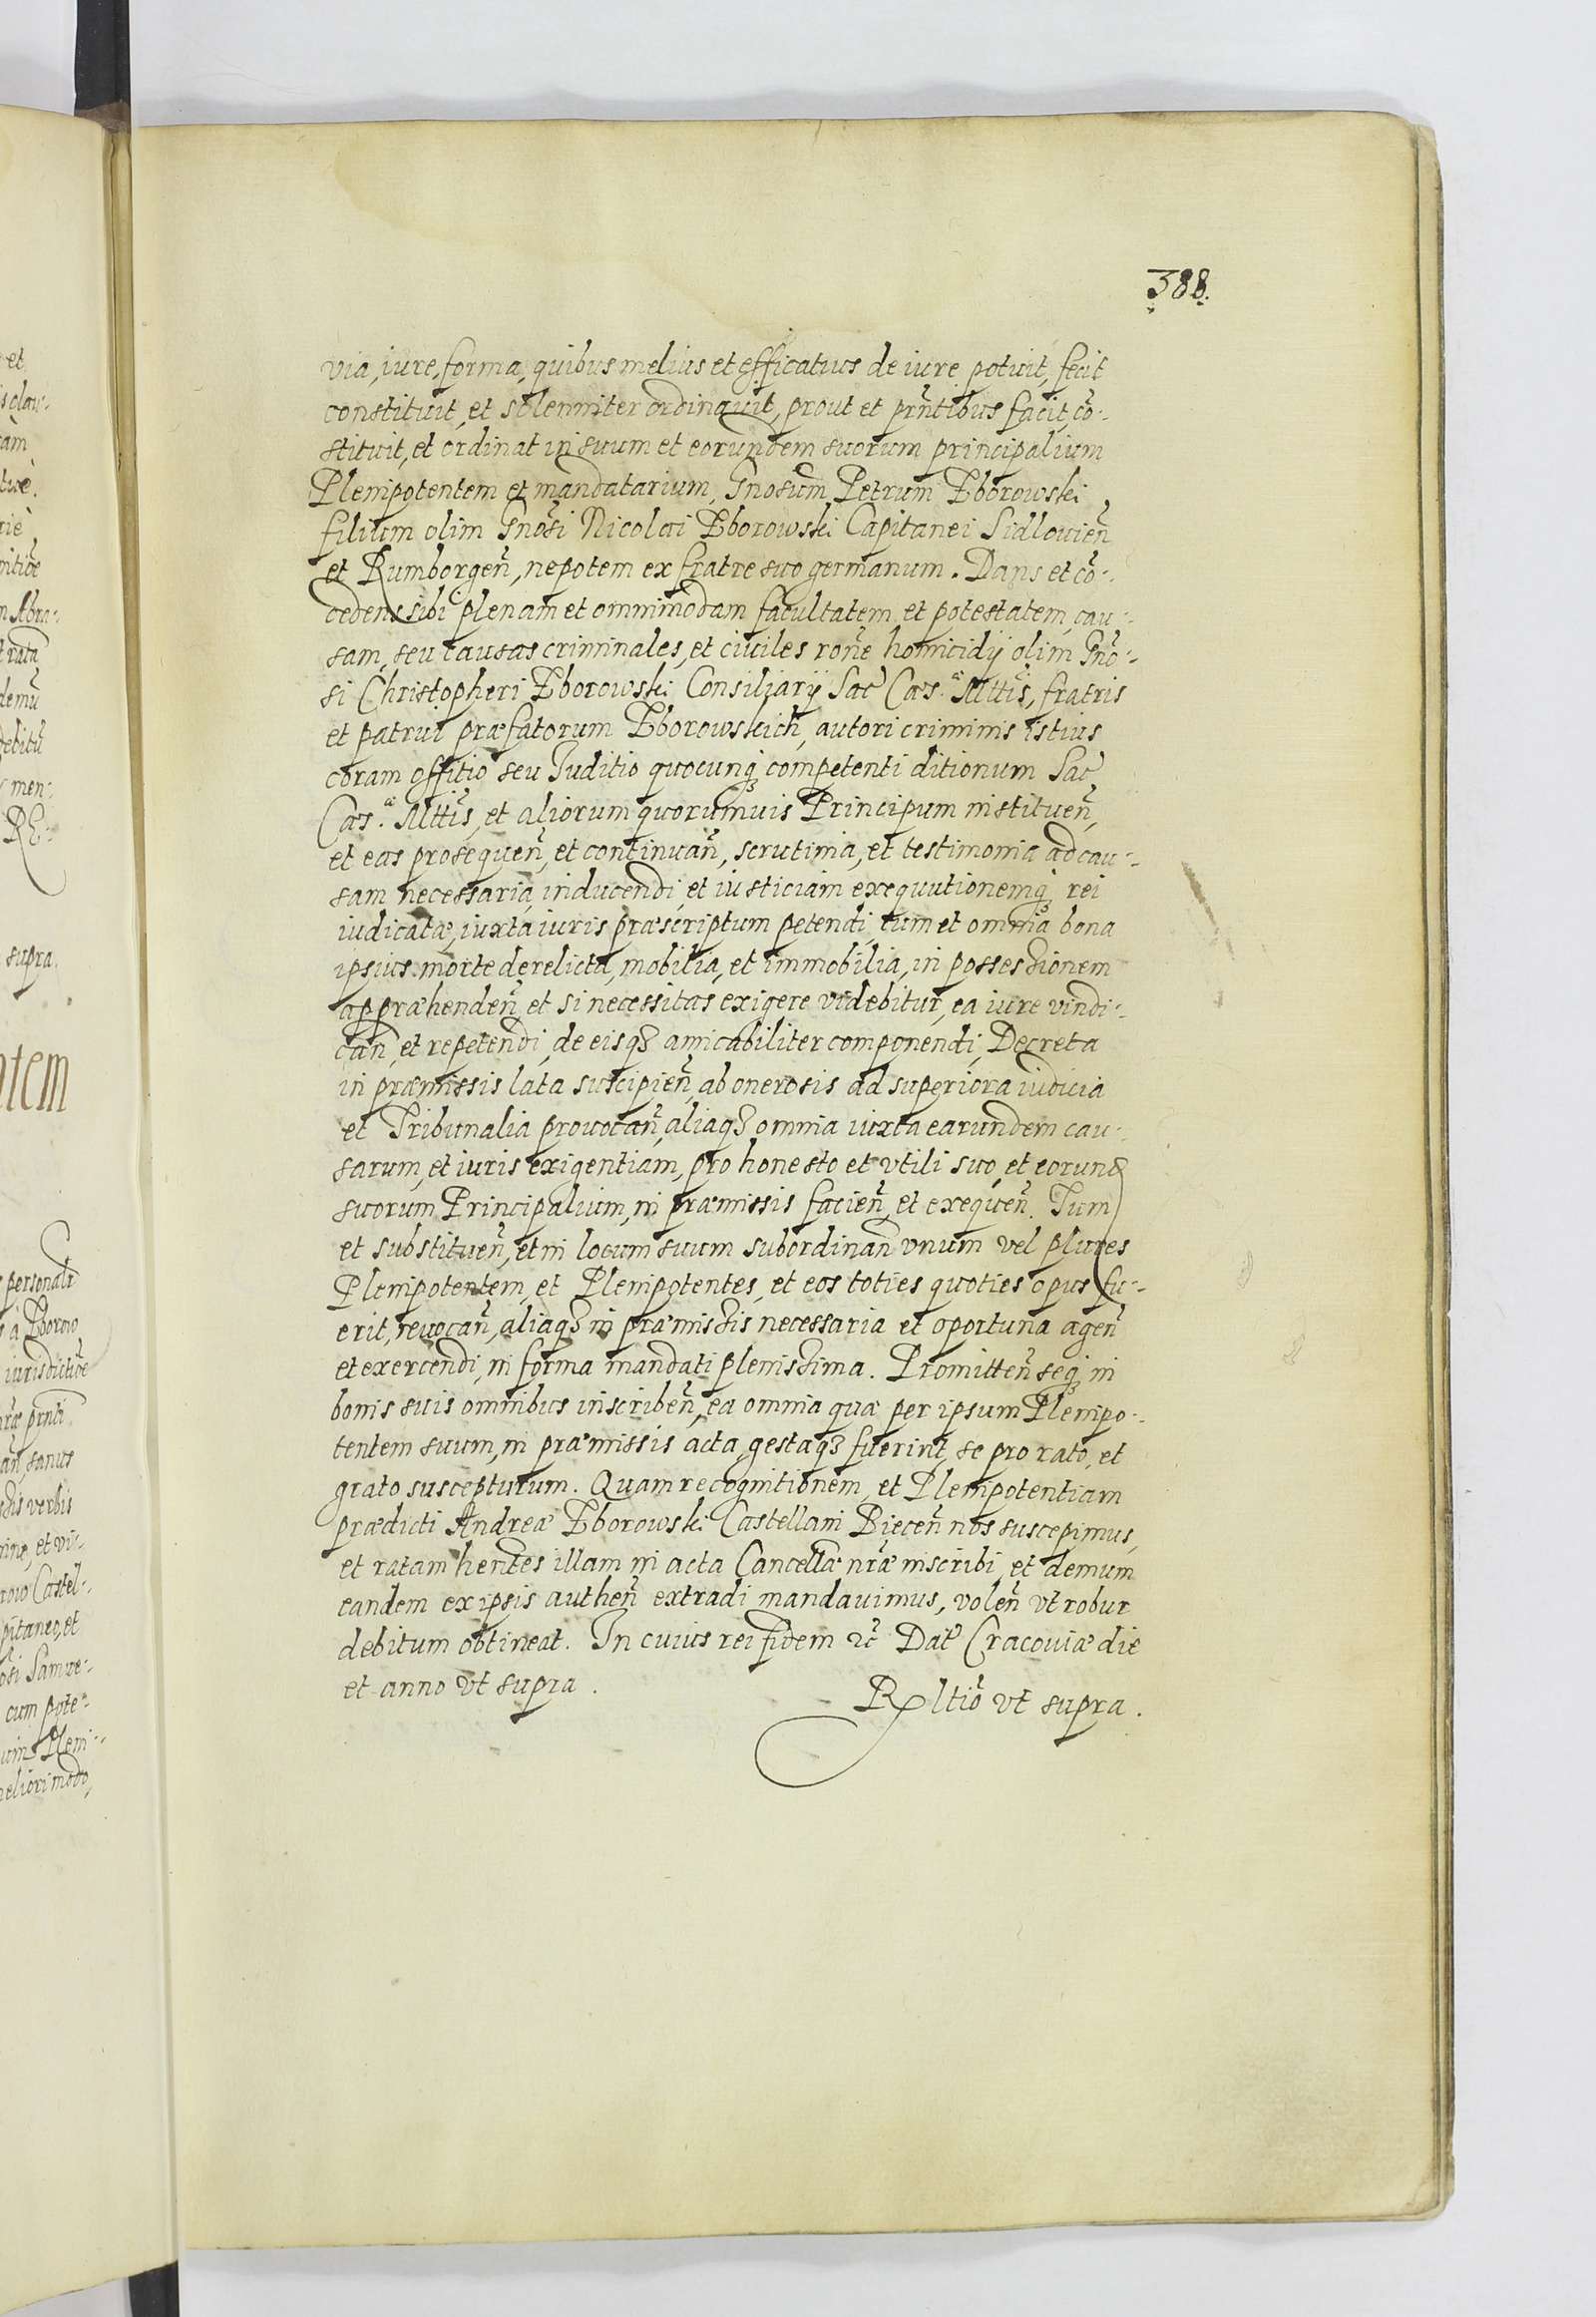 388.
via, iure, forma, quibus melius et efficatius de iure potuit, fecit
constituit, et solenniter ordinauit, prout et prn̄tibus facit, cō-
stituit, et ordinat in suum et eorundem suorum principalium
Plenipotentem et mandatarium, Gnosum Petrum Zborowski
filium olim Gnōsi Nicolai Zborowski Capitanei Sidlouien̄
et Rumborgen̄, nepotem ex fratre suo germanum. Dans et cō-
cedens sibi plenam et omnimodam facultatem et potestatem, cau-
sam, seu causas criminales, et ciuiles ron̄e homicidij olim Gnō-
si Christopheri Zborowski Consiliarij Sac̄ Caes.ae Mttis̄, fratris
et patrui praefatorum Zborowskich, autori criminis istius
coram offitio seu Iuditio quocunq; competenti ditionum Sac̄
Caes.ae Mttis̄, et aliorum quorumuis Principum instituen̄,
et eas prosequen̄, et continuan̄, scrutinia, et testimonia ad cau-
sam necessaria inducendi, et iusticiam exequutionemq; rei
iudicatae, iuxta iuris praescriptum petendi, tum et omnia bona
ipsius morte derelicta, mobilia, et immobilia, in possessionem
appraehenden̄, et si necessitas exigere videbitur, ea iure vindi-
can̄, et repetendi, de eisq; amicabiliter componendi, Decreta
in praemissis lata suscipien̄, ab onerosis ad superiora iudicia
et Tribunalia prouocan̄, aliaq; omnia iuxta earundem cau-
sarum, et iuris exigentiam, pro honesto et vtili suo, et eorund
suorum Principalium, in praemissis facien̄, et exequen̄. Tum
et substituen̄, et in locum suum subordinan̄ vnum vel plures
Plenipotentem, et Plenipotentes, et eos toties quoties opus fu-
erit, reuocan̄, aliaq; in praemissis necessaria et oportuna agen̄
et exercendi, in forma mandati plenissima. Promitten̄ seq; in
bonis suis omnibus inscriben̄, ea omnia quae per ipsum Plenipo-
tentem suum, in praemissis acta, gestaq; fuerint, se pro rato, et
grato suscepturum. Quam recognitionem, et Plenipotentiam
praedicti Andreae Zborowski Castellani Biecen̄ nos suscepimus,
et ratam hen̄tes illam in acta Cancellae nr̄ae inscribi, et demum
eandem ex ipsis authen̄ extradi mandauimus, volen̄ vt robur
debitum obtineat. In cuius rei fidem &c̄ Dat̄ Cracouiae die
et anno vt supra.
Rltiō vt supra.